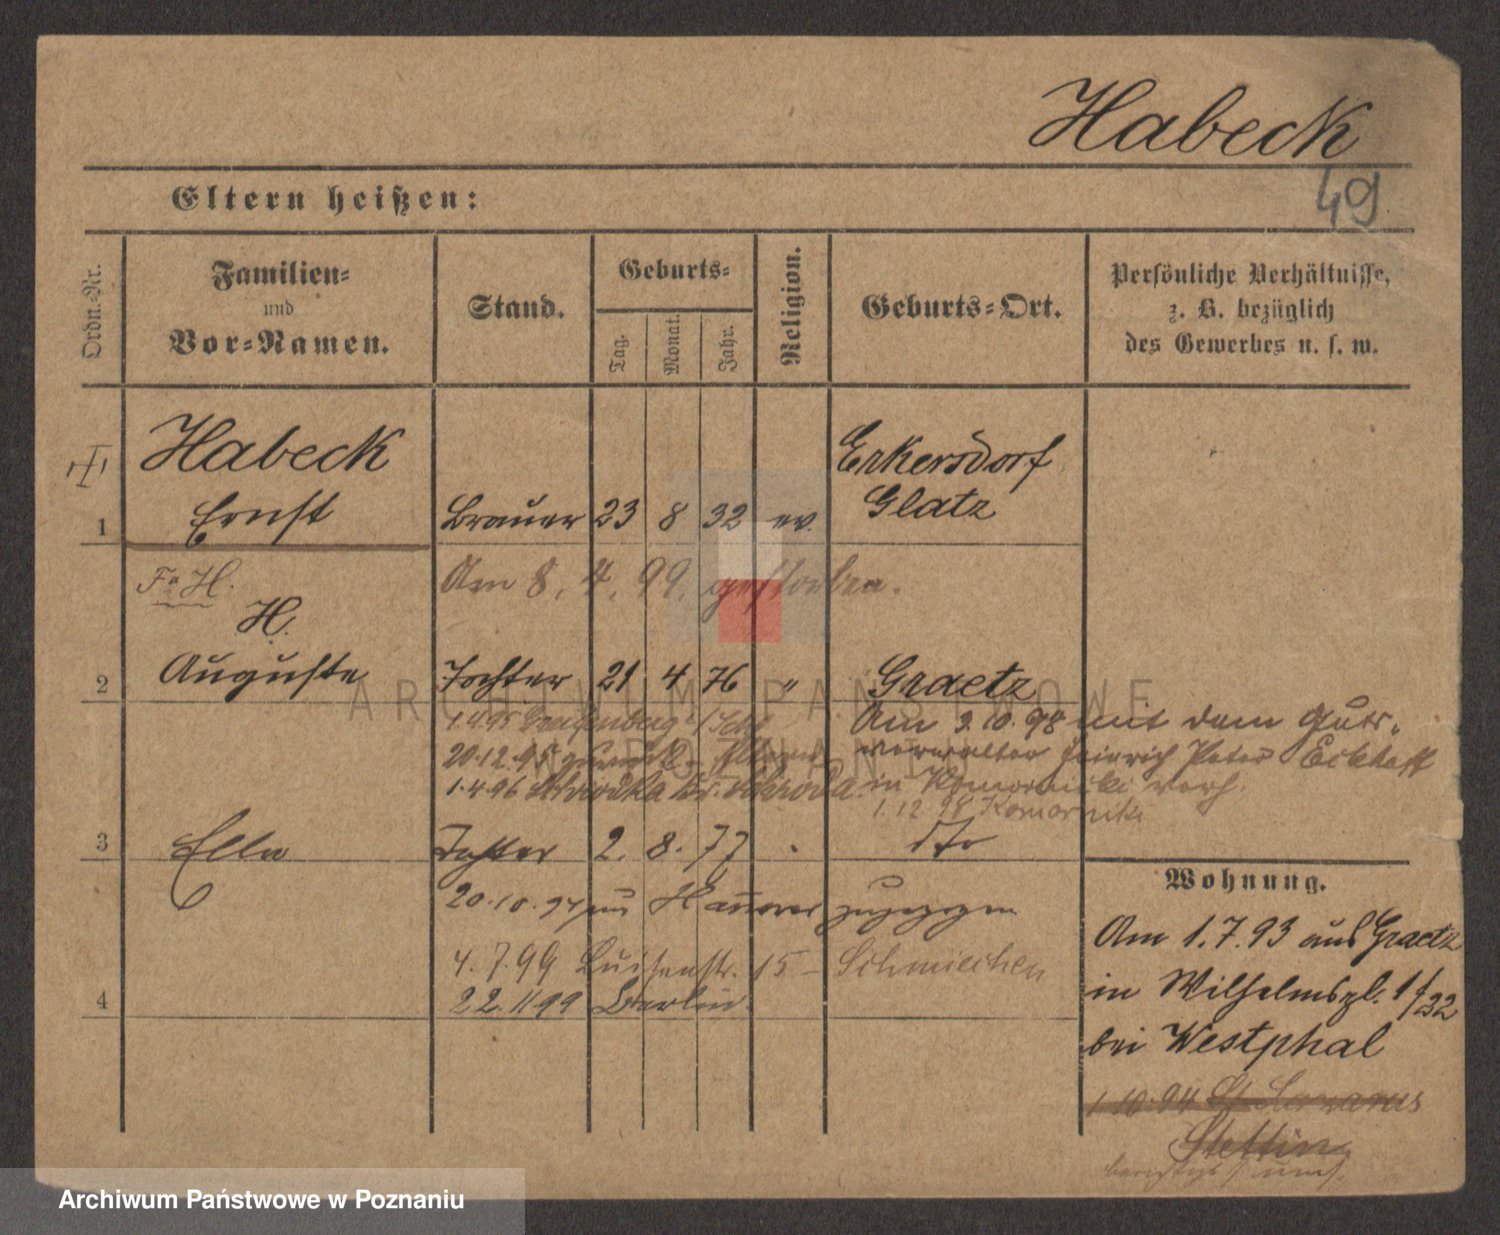 Habeck
49
Eltern heißen:
Ordn.-Nr.
Familien-
und
Vor-Namen.
Stand.
Geburts-
Tag.
Monat.
Jahr.
Religion.
Geburts-Ort.
Persönliche Verhältnisse,
z. B. bezüglich
des Gewerbes u. s. w.
Habeck
Ernst
1
Brauer 23 8 32 ev.
Eckersdorf
Glatz
Am 8. 4. 99. gestorben.
Fr H.
H.
2 Auguste Tochter 21 4 76 " Graetz
1.4.95
20.12.95 zurück
1.4.96 Schroda
Am 3.10.98 mit dem Guts-
verwalter Heinrich Peter Eckhoff
in Komorniki verh.
1.12.98 Komorniki
3 Ella Tochter 2. 8. 77 dto
20.10.94 Hanover zugezogen
4.7.99 Luisenstr. 15 - Schmiechen
22.11.99 Berlin.
4
Wohnung.
Am 1.7.93 aus Graetz
in Wilhelmspl. 1/32
bei Westphal
1.10.94 St. Lazarus
Stettin
ARCHIWUM PAŃSTWOWE
W POZNANIU
Archiwum Państwowe w Poznaniu